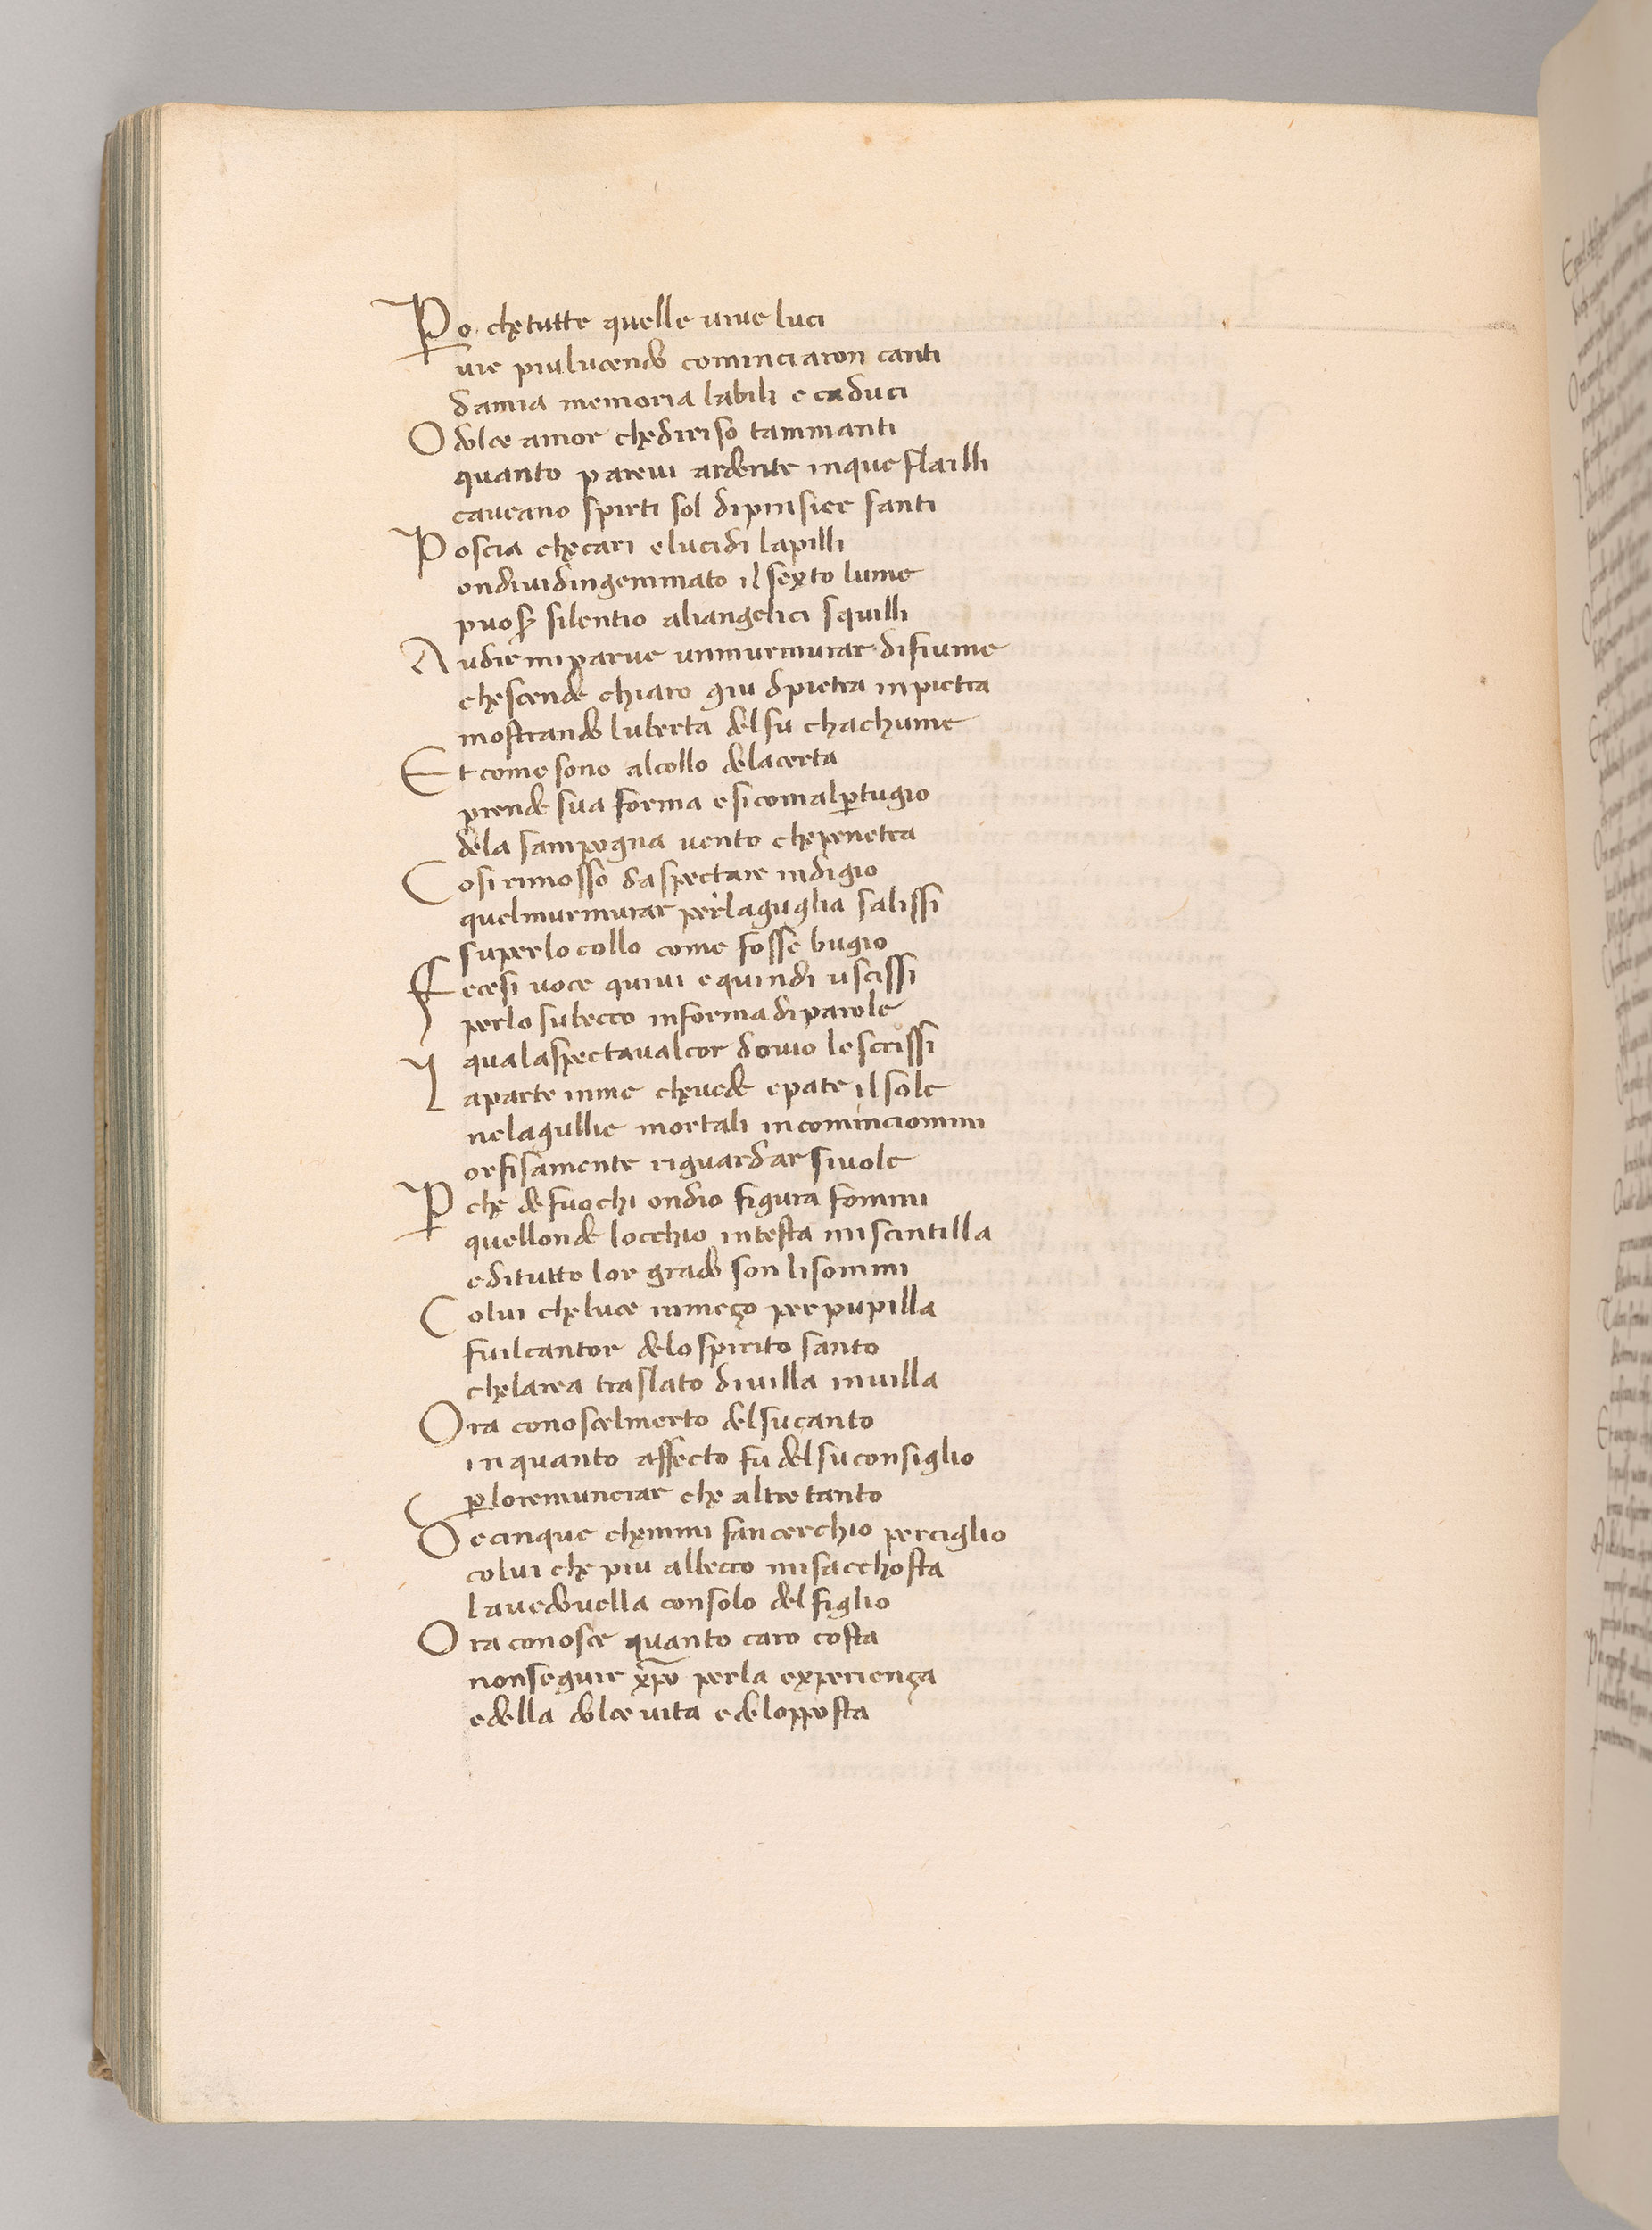 Po chętutte quelle viue luci
vie piulucendo cominciaron canti
damia memoria labili e caduci
O dolce amor chędiriso tammanti
quanto pareui ardente inque flailli
caueano spirti sol dipinsier santi
Poscia chęcari elucidi lapilli
ondiuidingemmato il sexto lume
puoser silentio aliangelici squilli
Audir miparue unmurmurar difiume
chęscende chiaro giu dpietra inpietra
mostrando luberta delsu chachume
Et come sono alcollo delacerta
prende sua forma esicomalp̱tugio
dela sampogna uento chępenetra
Cosi rimosso daspectare indigio
quelmurmurar perlaguglia salissi
superlo collo come fosse bugio
Fecesi uoce quiui equindi uscissi
perlo subecco informa diparole
qualaspectaualcor douio lescrissi
Laparte inme chęuede epate ilsole
nelagullie mortali incominciommi
orfisamente riguardar siuole
P̱ chę defuochi ondio figura fommi
quellonde locchio intesta miscintilla
editutte lor grado son lisommi
Colui chęluce inmeço per pupilla
fuilcantor delospirito santo
chęlarea traslato diuilla inuilla
Ora conoscelmerto delsucanto
inquanto affecto fu delsuconsiglio
p̱loremunerar chę altretanto
Decinque chęmmi fancerchio perciglio
colui chę piu albecco misacchosta
lauedouella consolo delfiglio
Ora conosce quanto caro costa
nonseguir xp̄o perla experiença
edella dolce uita edelopposta